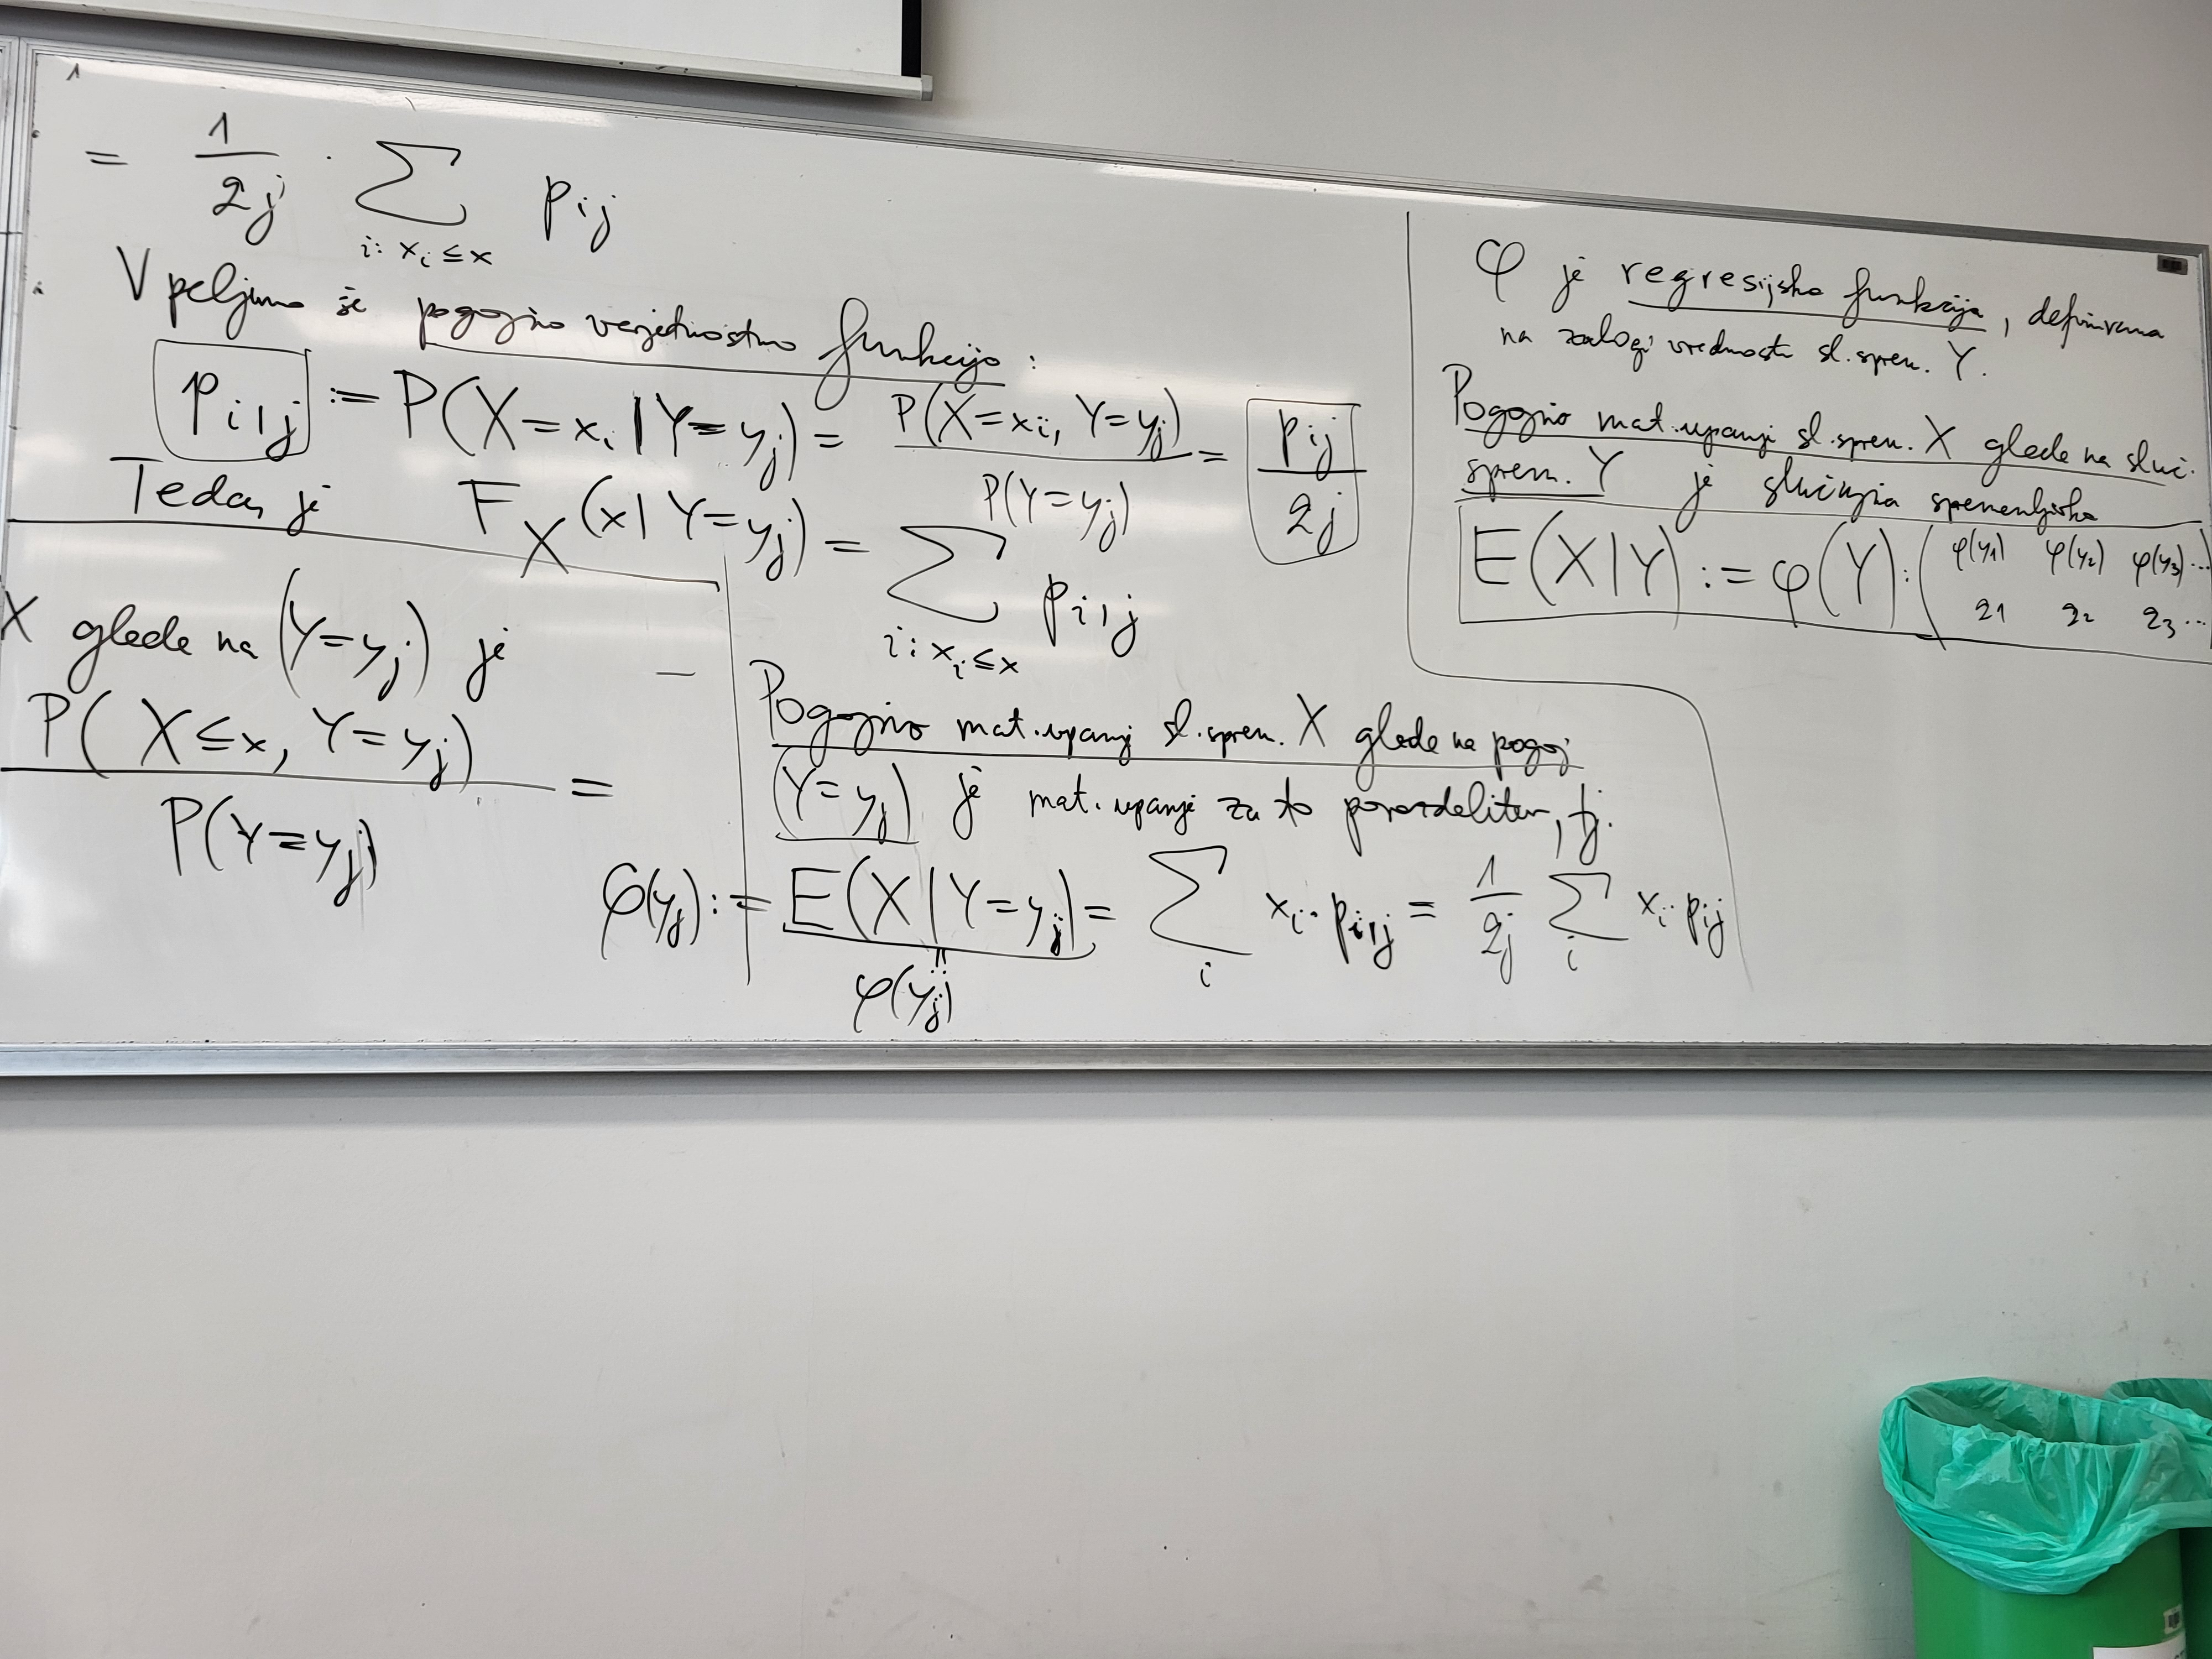 = 1/2j · ∑_{i: x_i ≤ x} p_{ij}
Vpeljimo še pogojno verjetnostno funkcijo:
p_{i|j} := P(X=x_i | Y=y_j) = P(X=x_i, Y=y_j) / P(Y=y_j) = p_{ij} / q_j
Tedaj je F_X(x | Y=y_j) = ∑_{i: x_i ≤ x} p_{i|j}
X glede na (Y=y_j) je
P(X≤x, Y=y_j) / P(Y=y_j) =
Pogojno mat. upanje sl. sprem. X glede na pogoj
(Y=y_j) je mat. upanje za to porazdelitev, tj.
φ(y_j) := E(X | Y=y_j) = ∑_i x_i · p_{i|j} = 1/q_j ∑_i x_i p_{ij}
φ(y_j)
φ je regresijska funkcija, definirana
na zalogi vrednosti sl. sprem. Y.
Pogojno mat. upanje sl. sprem. X glede na sluč.
sprem. Y je slučajna spremenljivka
E(X|Y) := φ(Y) : ( φ(y_1) φ(y_2) φ(y_3) ...
q_1 q_2 q_3 ...